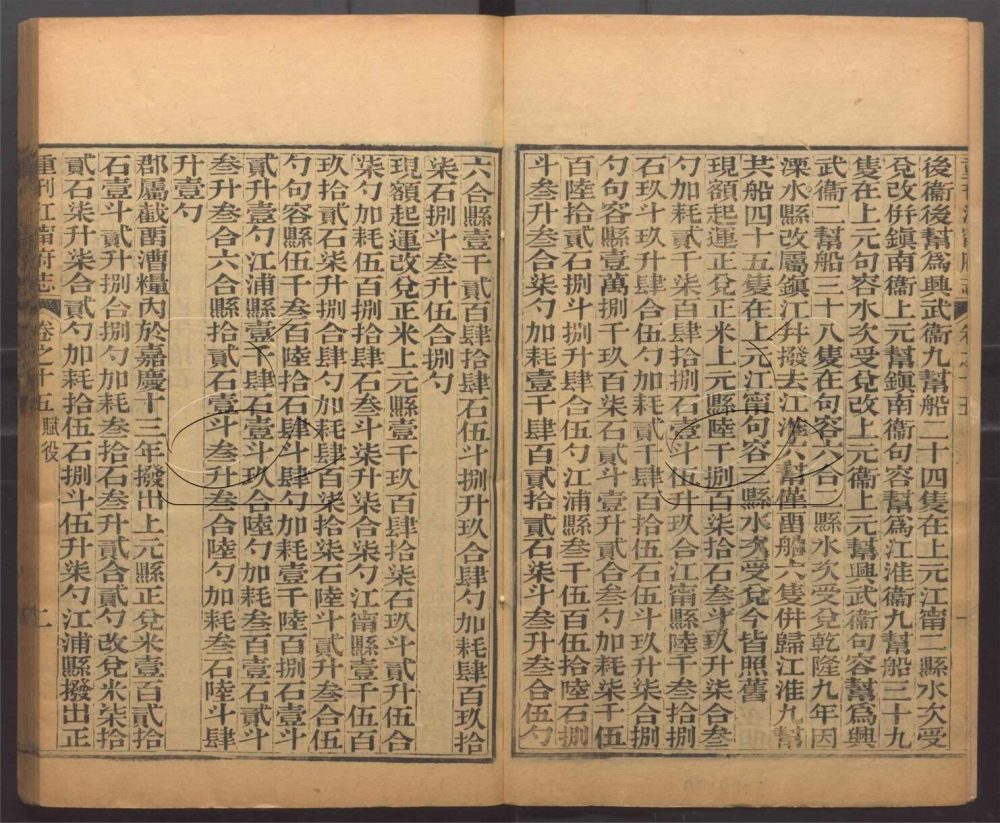 後衞後幫爲興武衞九幫船二十四隻在上元江甯二縣水次受
兌改併鎭南衞上元幫鎭南衞句容幫爲江淮衞九幫船三十九
隻在上元句容水次受兌改上元衞上元幫興武衞句容幫爲興
武衞二幫船三十八隻在句容六合二縣水次受兌乾隆九年因
溧水縣改屬鎭江幷撥去江淮六幫僅畱船六隻併歸江淮九幫
共船四十五隻在上元江甯句容三縣水次受兌今皆照舊
現額起運正兌正米上元縣陸千捌百柒拾石叁斗玖升柒合叁
勺加耗貳千柒百肆拾捌石壹斗伍升玖合江甯縣陸千叁拾捌
石玖斗玖升肆合伍勺加耗貳千肆百拾伍石伍斗玖升柒合捌
勺句容縣壹萬捌千玖百柒石貳斗壹升貳合叁勺加耗柒千伍
百陸拾貳石捌斗捌升肆合伍勺江浦縣叁千伍百伍拾陸石捌
斗叁升叁合柒勺加耗壹千肆百貳拾貳石柒斗叁升叁合伍勺
六合縣壹千貳百肆拾肆石伍斗捌升玖合肆勺加耗肆百玖拾
柒石捌斗叁升伍合捌勺
現額起運改兌正米上元縣壹千玖百肆拾柒石玖斗貳升伍合
柒勺加耗伍百捌拾肆石叁斗柒升柒合柒勺江甯縣壹千伍百
玖拾貳石柒升捌合肆勺加耗肆百柒拾柒石陸斗貳升叁合伍
勺句容縣伍千叁百陸拾石肆斗肆勺加耗壹千陸百捌石壹斗
貳升壹勺江浦縣壹千肆石壹斗玖合陸勺加耗叁百壹石貳斗
叁升叁合六合縣拾貳石壹斗叁升叁合陸勺加耗叁石陸斗肆
升壹勺
郡屬截畱漕糧內於嘉慶十三年撥出上元縣正兌米壹百貳拾
石壹斗貳升捌合捌勺加耗叁拾石叁升貳合貳勺改兌米柒拾
貳石柒升柒合貳勺加耗拾伍石捌斗伍升柒勺江浦縣撥出正
重刊江甯府志 卷之十五賦役 二